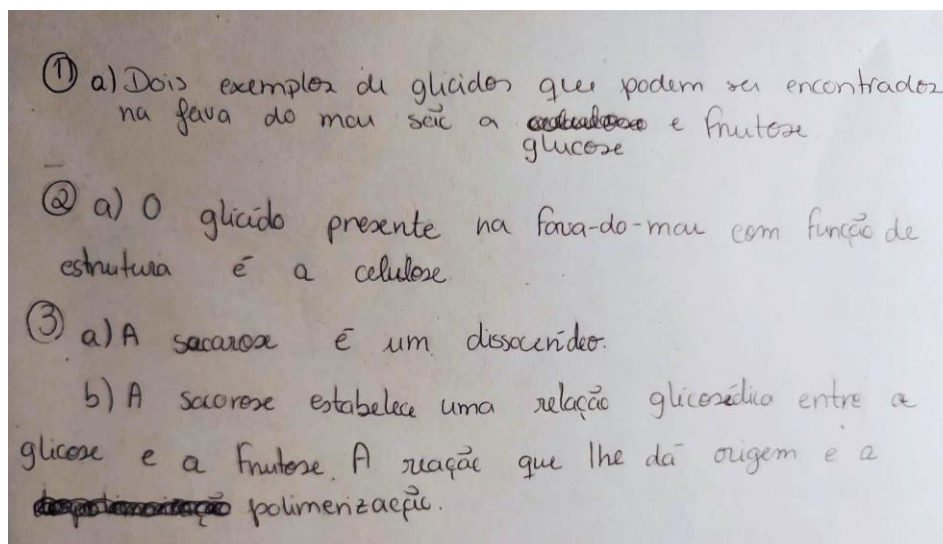 ① a) Dois exemplos de glicidos que podem ser encontrados
na fava do mar são a e frutose
glucose
② a) O glicido presente na fava-do-mar com função de
estrutura é a celulose.
③ a) A sacarose é um dissacerídeo.
b) A sacorose estabelece uma relação glicosédica entre a
glicose e a frutose. A reação que lhe dá origem e a
polimerizacção.